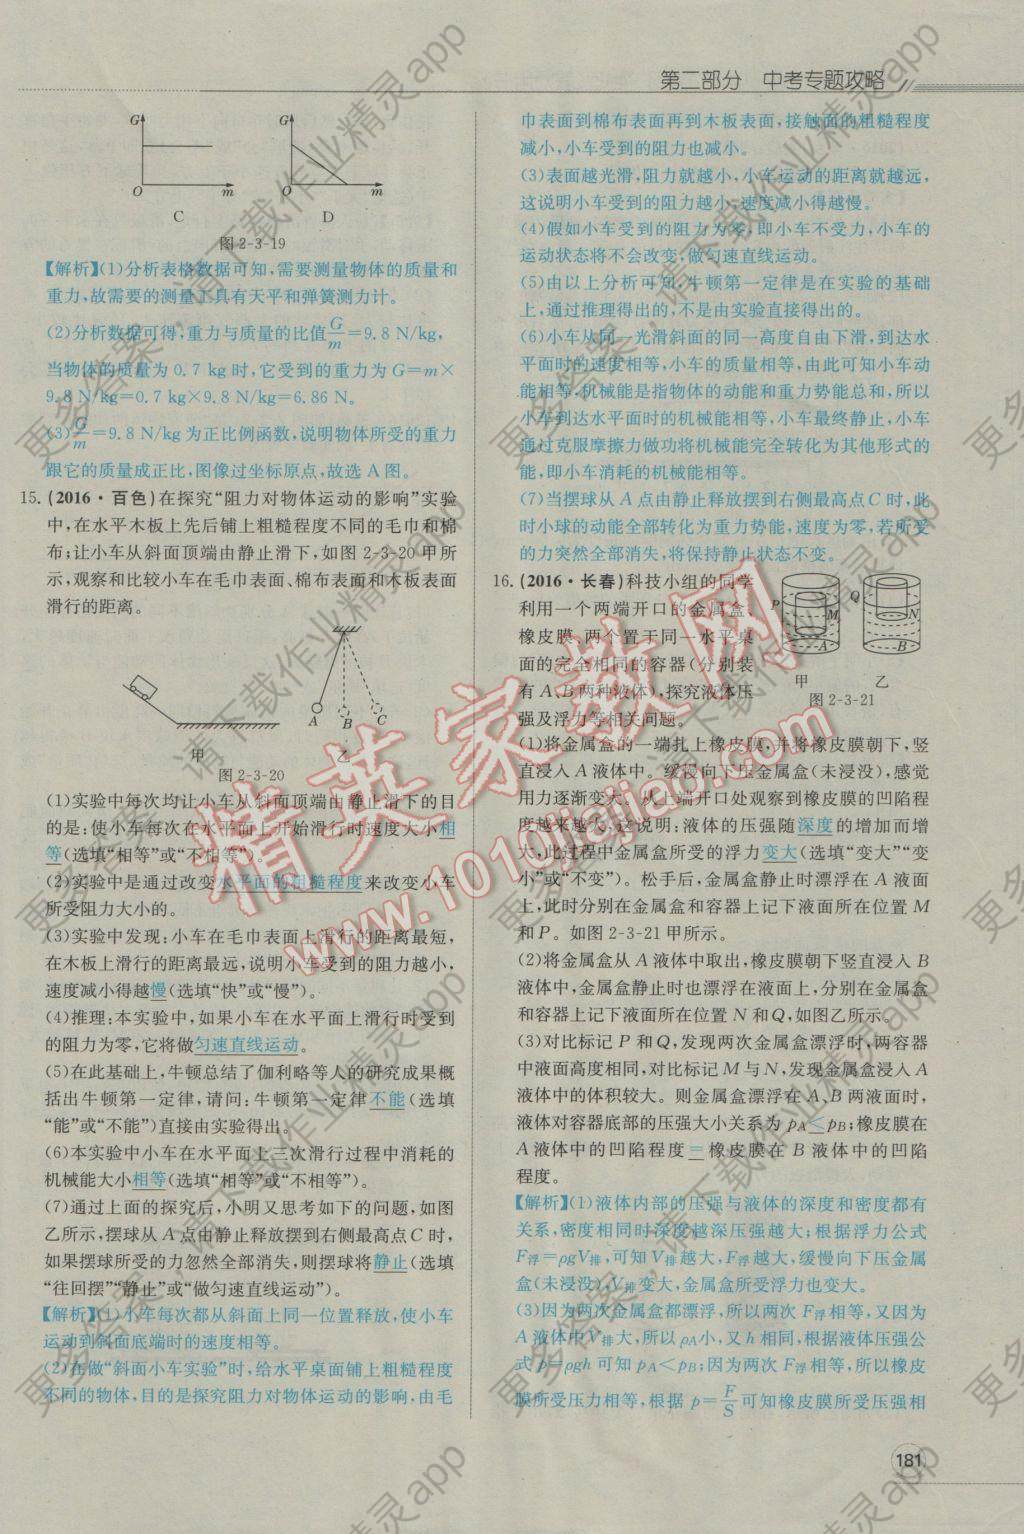 第二部分 中考专题攻略
G
O
m
C
G
O
m
D
图2-3-19
【解析】(1)分析表格数据可知,需要测量物体的质量和
重力,故需要的测量工具有天平和弹簧测力计。
(2)分析数据可得,重力与质量的比值G/m=9.8 N/kg,
当物体的质量为0.7 kg时,它受到的重力为G=m×
9.8 N/kg=0.7 kg×9.8 N/kg=6.86 N。
(3)G/m=9.8 N/kg为正比例函数,说明物体所受的重力
跟它的质量成正比,图像过坐标原点,故选A图。
15.(2016·百色)在探究“阻力对物体运动的影响”实验
中,在水平木板上先后铺上粗糙程度不同的毛巾和棉
布;让小车从斜面顶端由静止滑下,如图2-3-20甲所
示,观察和比较小车在毛巾表面、棉布表面和木板表面
滑行的距离。
A
B
C
甲 乙
图2-3-20
(1)实验中每次均让小车从斜面顶端由静止滑下的目
的是:使小车每次在水平面上开始滑行时速度大小相
等(选填“相等”或“不相等”)。
(2)实验中是通过改变水平面的粗糙程度来改变小车
所受阻力大小的。
(3)实验中发现:小车在毛巾表面上滑行的距离最短,
在木板上滑行的距离最远,说明小车受到的阻力越小,
速度减小得越慢(选填“快”或“慢”)。
(4)推理:本实验中,如果小车在水平面上滑行时受到
的阻力为零,它将做匀速直线运动。
(5)在此基础上,牛顿总结了伽利略等人的研究成果概
括出牛顿第一定律,请问:牛顿第一定律不能(选填
“能”或“不能”)直接由实验得出。
(6)本实验中小车在水平面上三次滑行过程中消耗的
机械能大小相等(选填“相等”或“不相等”)。
(7)通过上面的探究,小明又思考如下的问题,如图
乙所示,摆球从A点由静止释放摆到右侧最高点C时,
如果摆球所受的力忽然全部消失,则摆球将静止(选填
“往回摆”“静止”或“做匀速直线运动”)。
【解析】(1)小车每次都从斜面上同一位置释放,使小车
运动到斜面底端时的速度相等。
(2)在做“斜面小车实验”时,给水平桌面铺上粗糙程度
不同的物体,目的是探究阻力对物体运动的影响,由毛
巾表面到棉布表面再到木板表面,接触面的粗糙程度
减小,小车受到的阻力也减小。
(3)表面越光滑,阻力就越小,小车运动的距离就越远,
这说明小车受到的阻力越小,速度减小得越慢。
(4)假如小车受到的阻力为零,即小车不受力,小车的
运动状态将不会改变,做匀速直线运动。
(5)由以上分析可知,牛顿第一定律是在实验的基础
上,通过推理得出的,不是由实验直接得出的。
(6)小车从同一光滑斜面的同一高度自由下滑,到达水
平面时的速度相等,小车的质量相等,由此可知小车动
能相等,机械能是指物体的动能和重力势能总和,所以
小车到达水平面时的机械能相等,小车最终静止,小车
通过克服摩擦力做功将机械能完全转化为其他形式的
能,即小车消耗的机械能相等。
(7)当摆球从A点由静止释放摆到右侧最高点C时,此
时小球的动能全部转化为重力势能,速度为零,若所受
的力突然全部消失,将保持静止状态不变。
16.(2016·长春)科技小组的同学
利用一个两端开口的金属盒、
橡皮膜、两个置于同一水平桌
面的完全相同的容器(分别装
有A、B两种液体),探究液体压
强及浮力等相关问题。
P
M
A
Q
N
B
甲 乙
图2-3-21
(1)将金属盒的一端扎上橡皮膜,并将橡皮膜朝下,竖
直浸入A液体中。缓慢向下压金属盒(未浸没),感觉
用力逐渐变大。从上端开口处观察到橡皮膜的凹陷程
度越来越大,这说明:液体的压强随深度的增加而增
大,此过程中金属盒所受的浮力变大(选填“变大”“变
小”或“不变”)。松手后,金属盒静止时漂浮在A液面
上,此时分别在金属盒和容器上记下液面所在位置M
和P。如图2-3-21甲所示。
(2)将金属盒从A液体中取出,橡皮膜朝下竖直浸入B
液体中,金属盒静止时也漂浮在液面上,分别在金属盒
和容器上记下液面所在位置N和Q,如图乙所示。
(3)对比标记P和Q,发现两次金属盒漂浮时,两容器
中液面高度相同,对比标记M与N,发现金属盒浸入A
液体中的体积较大。则金属盒漂浮在A、B两液面时,
液体对容器底部的压强大小关系为pA<pB;橡皮膜在
A液体中的凹陷程度=橡皮膜在B液体中的凹陷
程度。
【解析】(1)液体内部的压强与液体的深度和密度都有
关系,密度相同时深度越深压强越大;根据浮力公式
F浮=ρgV排,可知V排越大,F浮越大,缓慢向下压金属
盒(未浸没),V排变大,金属盒所受浮力也变大。
(3)因为两次金属盒都漂浮,所以两次F浮相等,又因为
A液体中V排大,所以ρA小,又h相同,根据液体压强公
式p=ρgh可知pA<pB;因为两次F浮相等,所以橡皮
膜所受压力相等,根据p=F/S可知橡皮膜所受压强相
181
精英家教网
www.1010jiajiao.com
更多答案,请下载作业精灵app